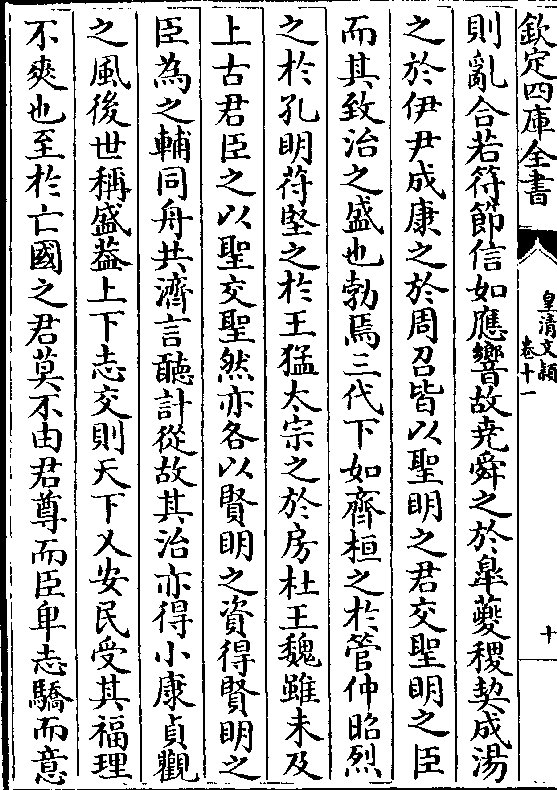 欽定四庫全書
皇清文穎
卷十一
十
則亂合若符節信如應響故堯舜之於臯夔稷契成湯
之於伊尹成康之於周召皆以聖明之君交聖明之臣
而其致治之盛也勃焉三代下如齊桓之於管仲昭烈
之於孔明苻堅之於王猛太宗之於房杜王魏雖未及
上古君臣之以聖交聖然亦各以賢明之資得賢明之
臣為之輔同舟共濟言聽計從故其治亦得小康貞觀
之風後世稱盛葢上下志交則天下乂安民受其福理
不爽也至於亡國之君莫不由君尊而臣卑志驕而意